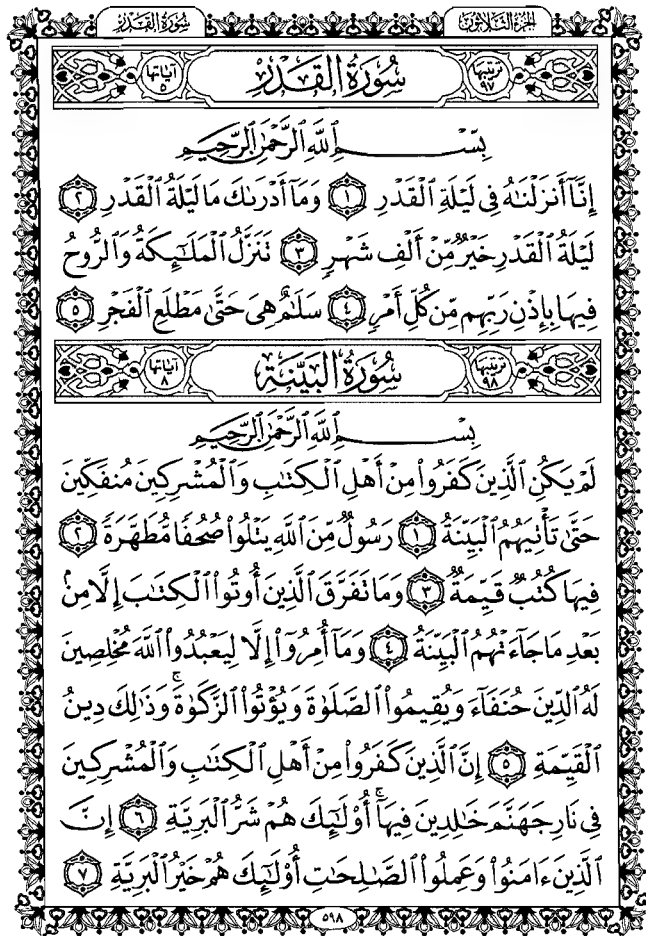 الجزء الثلاثون سورة القدر
ترتيبها ٩٧ سُورَةُ القَدْرِ آياتها ٥
بِسْمِ ٱللَّهِ ٱلرَّحْمَٰنِ ٱلرَّحِيمِ
إِنَّآ أَنزَلْنَٰهُ فِى لَيْلَةِ ٱلْقَدْرِ ١ وَمَآ أَدْرَىٰكَ مَا لَيْلَةُ ٱلْقَدْرِ ٢
لَيْلَةُ ٱلْقَدْرِ خَيْرٌ مِّنْ أَلْفِ شَهْرٍ ٣ تَنَزَّلُ ٱلْمَلَٰٓئِكَةُ وَٱلرُّوحُ
فِيهَا بِإِذْنِ رَبِّهِم مِّن كُلِّ أَمْرٍ ٤ سَلَٰمٌ هِىَ حَتَّىٰ مَطْلَعِ ٱلْفَجْرِ ٥
ترتيبها ٩٨ سُورَةُ البَيِّنَةِ آياتها ٨
بِسْمِ ٱللَّهِ ٱلرَّحْمَٰنِ ٱلرَّحِيمِ
لَمْ يَكُنِ ٱلَّذِينَ كَفَرُوا۟ مِنْ أَهْلِ ٱلْكِتَٰبِ وَٱلْمُشْرِكِينَ مُنفَكِّينَ
حَتَّىٰ تَأْتِيَهُمُ ٱلْبَيِّنَةُ ١ رَسُولٌ مِّنَ ٱللَّهِ يَتْلُوا۟ صُحُفًا مُّطَهَّرَةً ٢
فِيهَا كُتُبٌ قَيِّمَةٌ ٣ وَمَا تَفَرَّقَ ٱلَّذِينَ أُوتُوا۟ ٱلْكِتَٰبَ إِلَّا مِنۢ
بَعْدِ مَا جَآءَتْهُمُ ٱلْبَيِّنَةُ ٤ وَمَآ أُمِرُوٓا۟ إِلَّا لِيَعْبُدُوا۟ ٱللَّهَ مُخْلِصِينَ
لَهُ ٱلدِّينَ حُنَفَآءَ وَيُقِيمُوا۟ ٱلصَّلَوٰةَ وَيُؤْتُوا۟ ٱلزَّكَوٰةَ ۚ وَذَٰلِكَ دِينُ
ٱلْقَيِّمَةِ ٥ إِنَّ ٱلَّذِينَ كَفَرُوا۟ مِنْ أَهْلِ ٱلْكِتَٰبِ وَٱلْمُشْرِكِينَ
فِى نَارِ جَهَنَّمَ خَٰلِدِينَ فِيهَآ ۚ أُو۟لَٰٓئِكَ هُمْ شَرُّ ٱلْبَرِيَّةِ ٦ إِنَّ
ٱلَّذِينَ ءَامَنُوا۟ وَعَمِلُوا۟ ٱلصَّٰلِحَٰتِ أُو۟لَٰٓئِكَ هُمْ خَيْرُ ٱلْبَرِيَّةِ ٧
٥٩٨